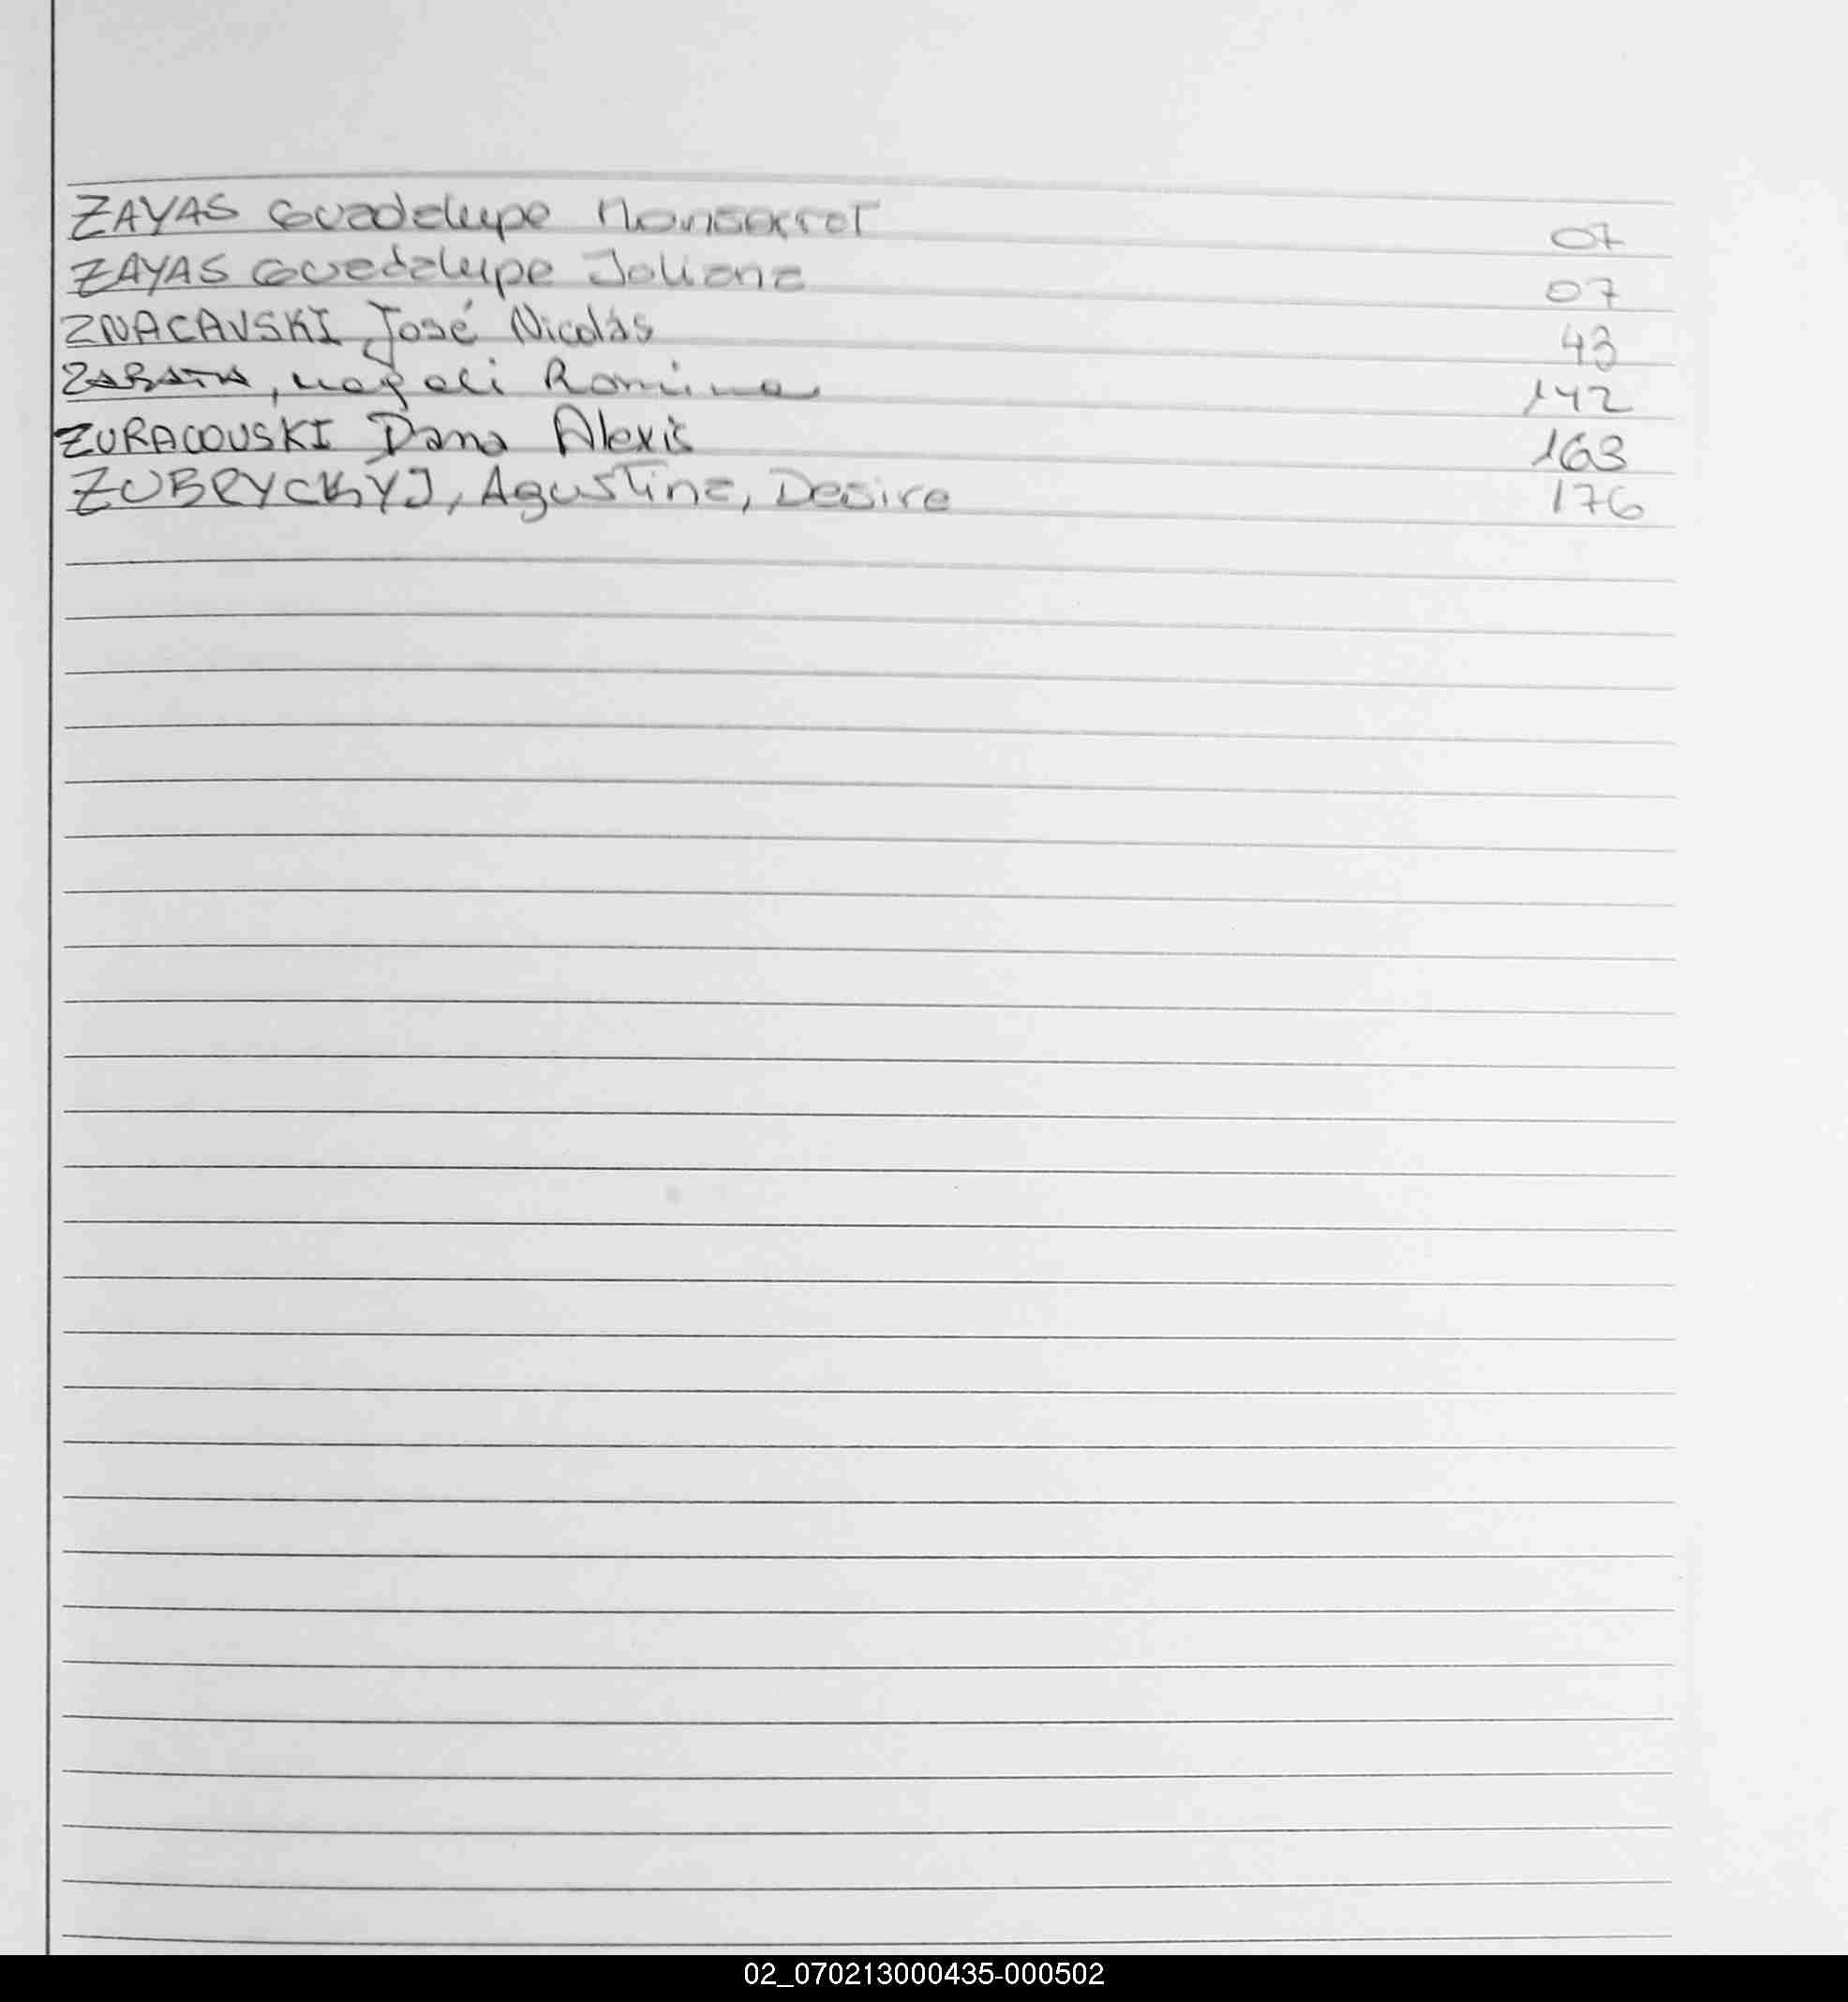 ZAYAS Guadalupe Monserrat 07
ZAYAS Guadalupe Juliana 07
ZNACAVSKI José Nicolás 43
ZARATA, magali Romina 142
ZURACOUSKI Dana Alexis 163
ZUBRYCKYJ, Agustina, Desire 176
02_070213000435-000502